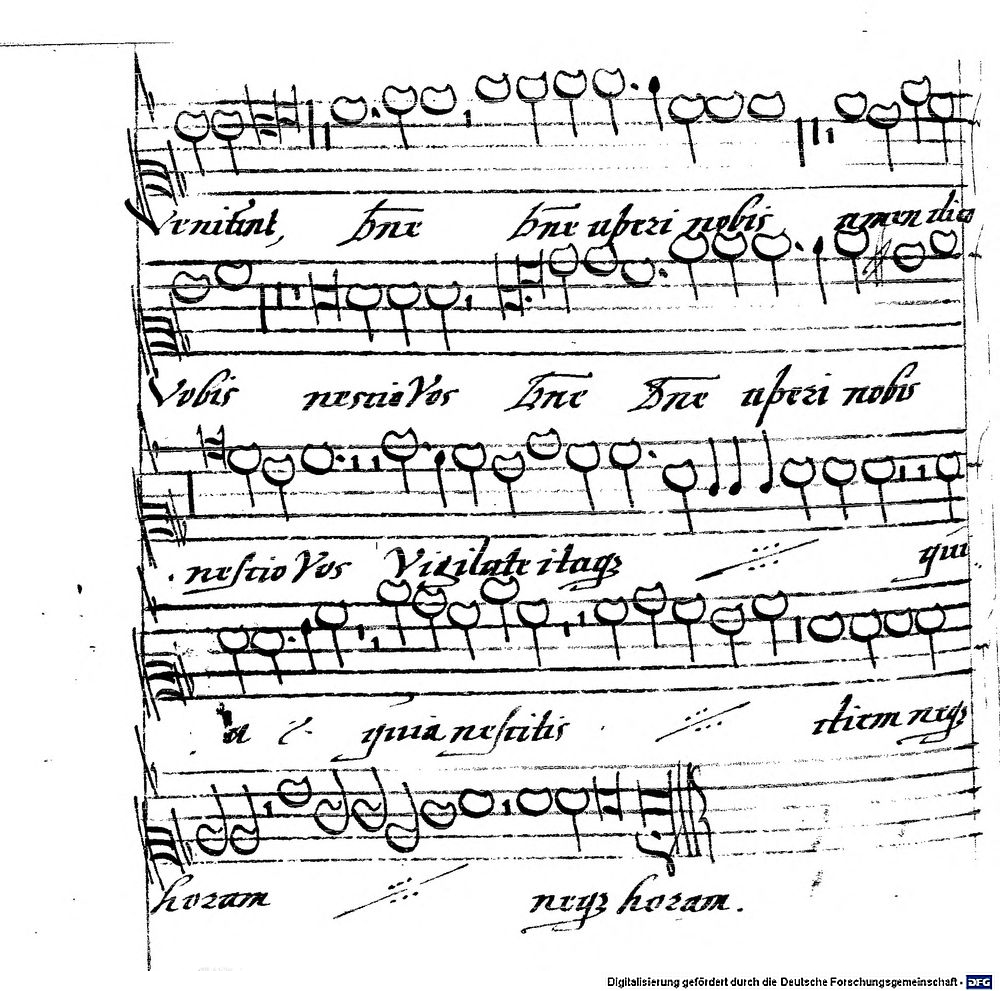 Venitent, dne dne aperi nobis amen dico
Vobis nescio Vos dne dne aperi nobis
nescio Vos Vigilate itaqz qui
a quia nescitis diem neqz
horam neqz horam.
Digitalisierung gefördert durch die Deutsche Forschungsgemeinschaft - DFG